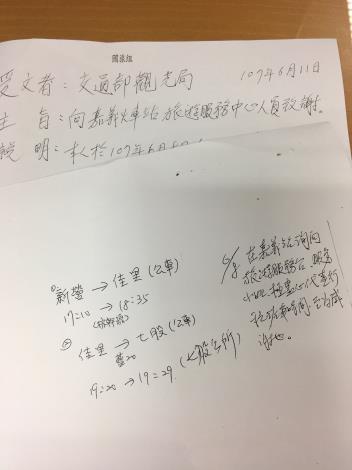 國旅組
受文者：交通部觀光局 107年6月11日
主 旨：向嘉義火車站旅遊服務中心人員致謝。
說 明：本人於107年6月8日
① 新營 → 佳里 (公車)
17:10 → 18:35
② 佳里 → 七股 (公車)
藍20
19:20 → 19:29 (七股公所)
6/8 在嘉義站詢問
旅遊服務台，服務
小姐 代查行
時間 至為感
謝她。